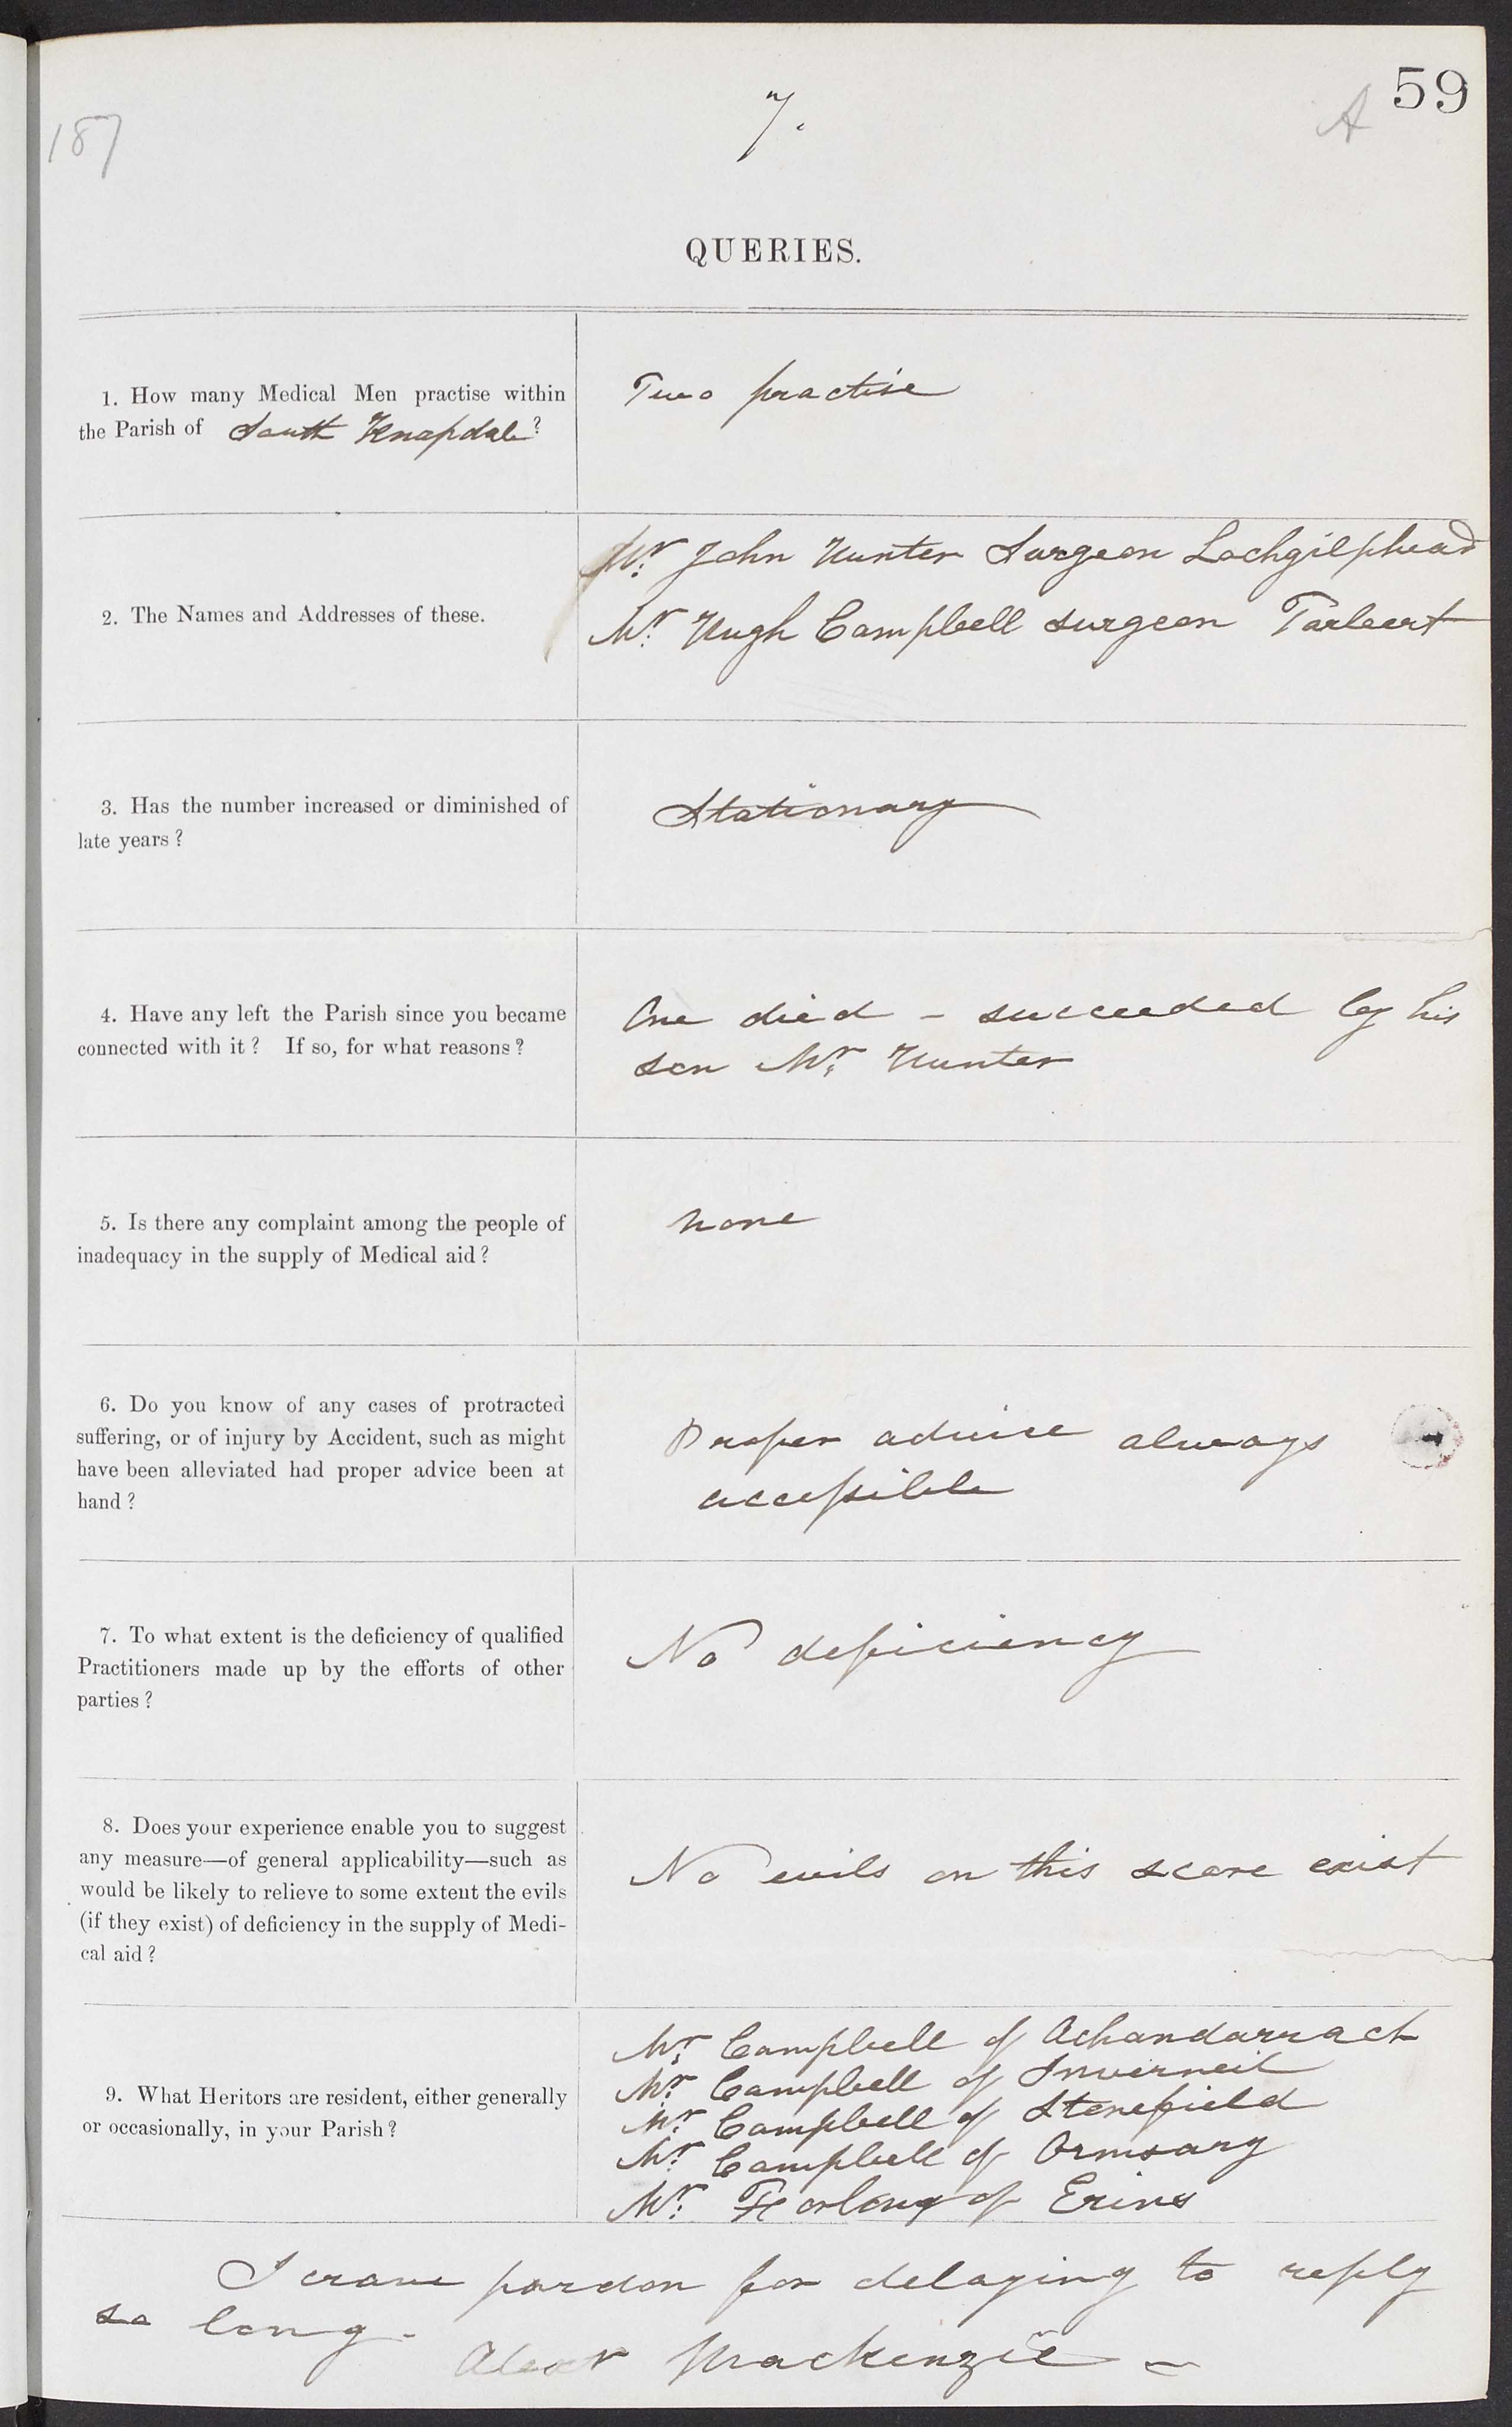 59
A
7.
187
QUERIES.
1. How many Medical Men practise within
the Parish of South Knapdale?
Two practise
2. The Names and Addresses of these.
Mr. John Hunter Surgeon Lochgilphead
Mr. Hugh Campbell surgeon Tarbert
3. Has the number increased or diminished of
late years?
Stationary
4. Have any left the Parish since you became
connected with it? If so, for what reasons?
One died - succeeded by his
son Mr. Hunter
5. Is there any complaint among the people of
inadequacy in the supply of Medical aid?
None
6. Do you know of any cases of protracted
suffering, or of injury by Accident, such as might
have been alleviated had proper advice been at
hand?
Proper advice always
accessible
7. To what extent is the deficiency of qualified
Practitioners made up by the efforts of other
parties?
No deficiency
8. Does your experience enable you to suggest
any measure—of general applicability—such as
would be likely to relieve to some extent the evils
(if they exist) of deficiency in the supply of Medi-
cal aid?
No evils on this score exist
9. What Heritors are resident, either generally
or occasionally, in your Parish?
Mr. Campbell of Achandarrach
Mr. Campbell of Inverneil
Mr. Campbell of Stonefield
Mr. Campbell of Ormsary
Mr. Forlong of Erins
I crave pardon for delaying to reply
so long -
Alexr Mackenzie